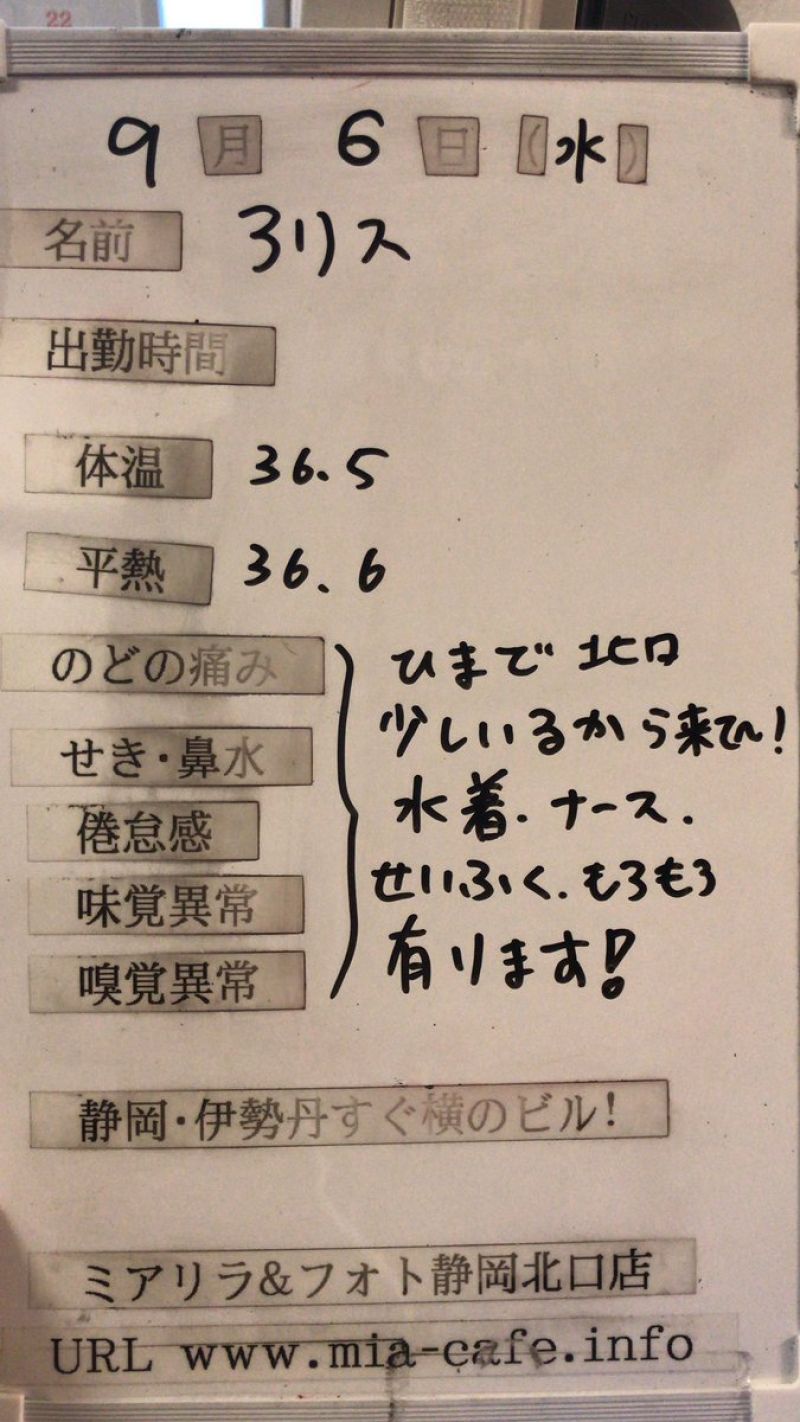 22
9月 6日(水)
名前 アリス
出勤時間
体温 36.5
平熱 36.6
のどの痛み
せき・鼻水
倦怠感
味覚異常
嗅覚異常
ひまで北口
少しいるから来てん!
水着.ナース.
せいふく.もろもろ
有ります!
静岡・伊勢丹すぐ横のビル!
ミアリラ&フォト静岡北口店
URL www.mia-cafe.info